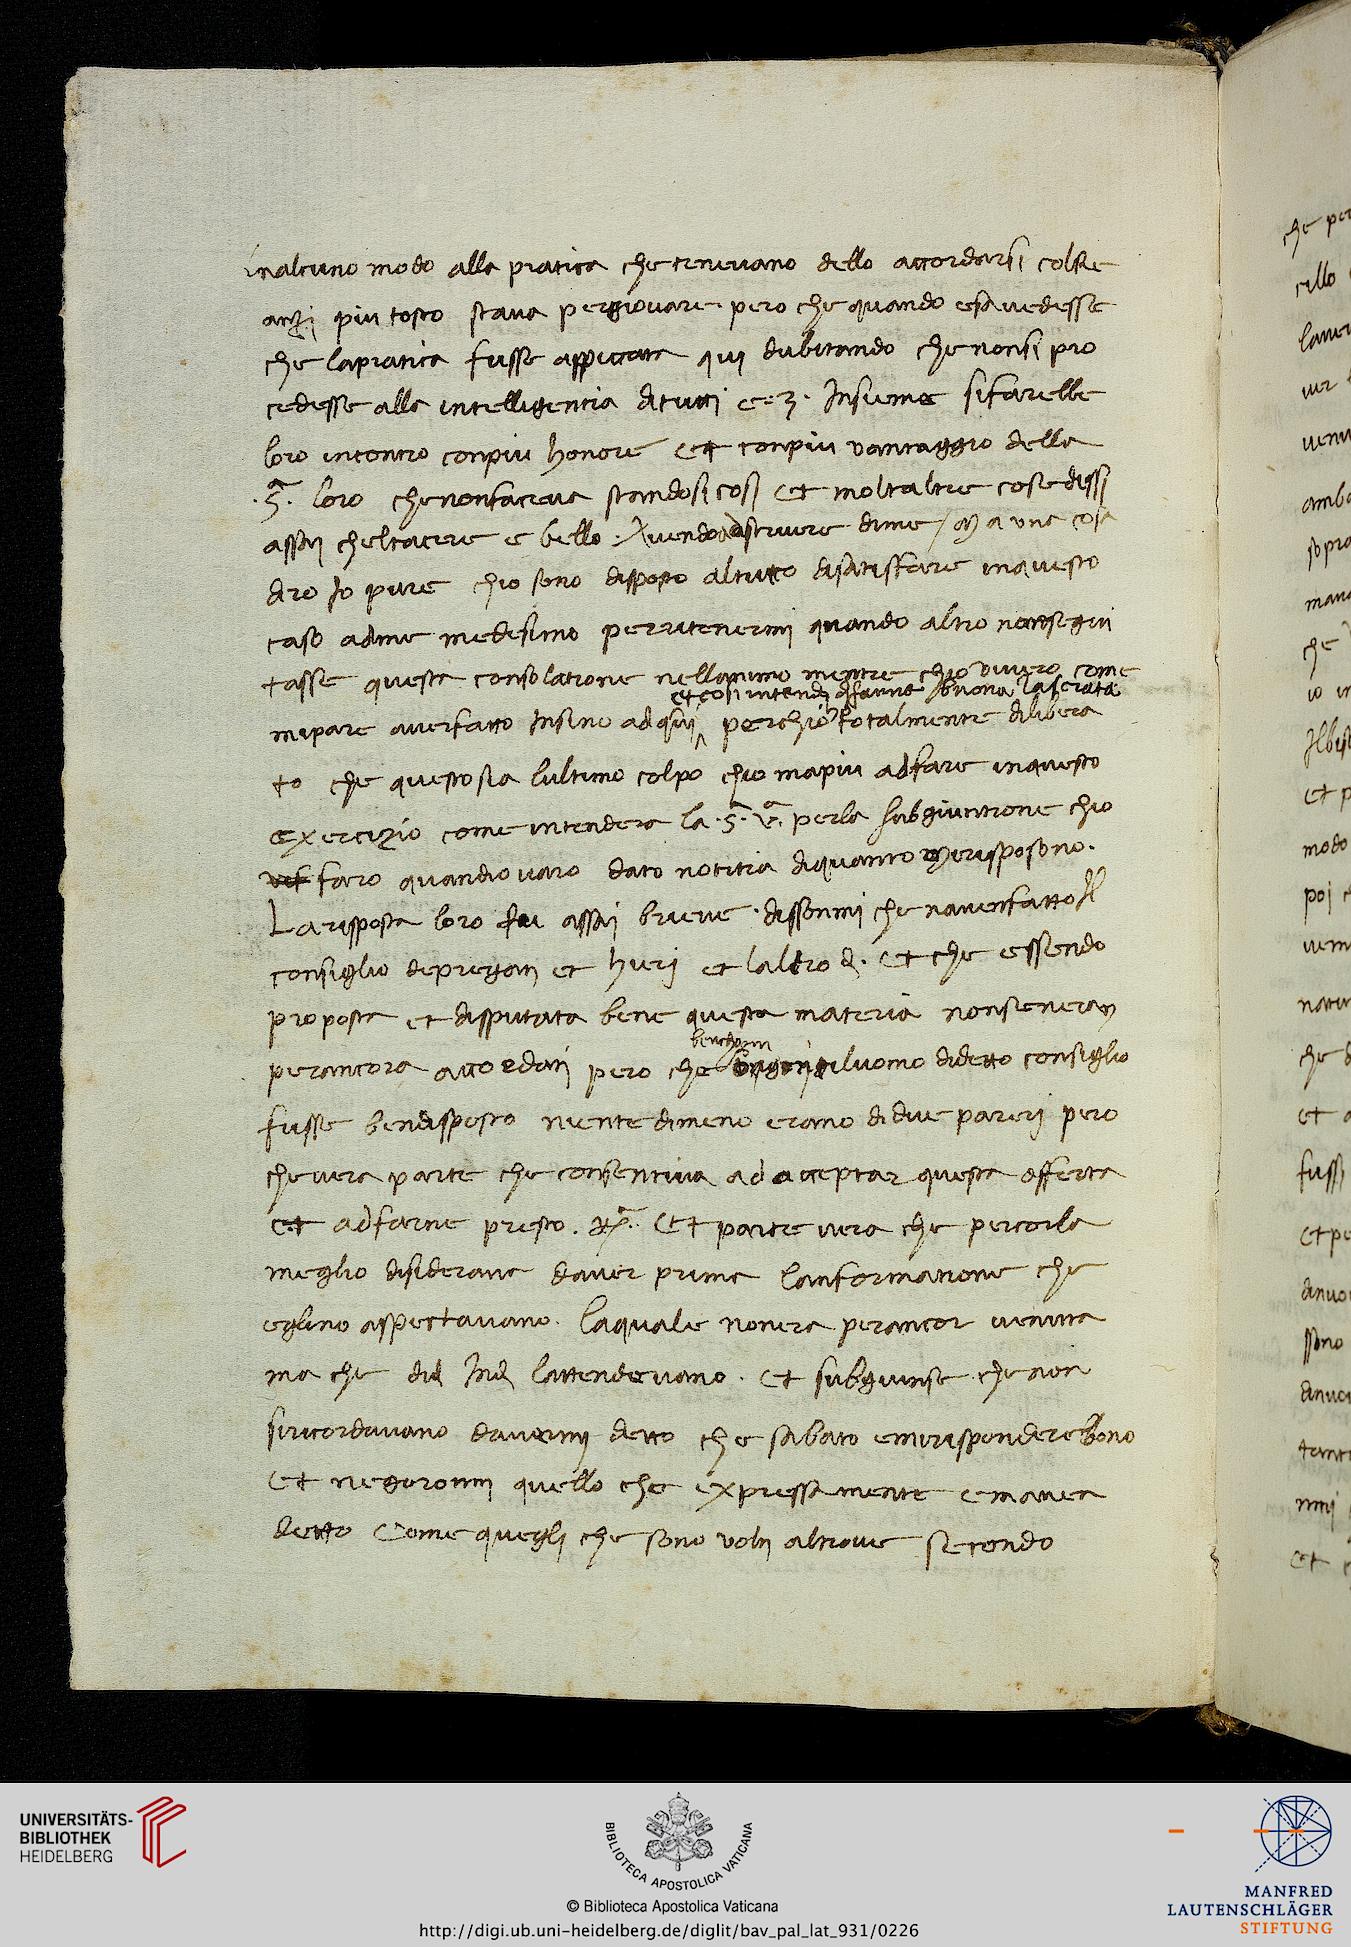 inalcuno modo alla pratica che tenevano dello accordarsi colRe
anzi piu tosto stava pergiovare pero che quando essa vedesse
che lapratica fusse appiccata qui dubitando che nonsi pro
cedesse alla intelligentia di tutti e. 3. Insieme sifarebbe
loro incontro conpiu honore et conpiu vantaggio della
.S. loro chenonfaceva standosi cosi et moltaltre cose dissi
assai cheltacere e bello. Avendo ascrivere dime / Ma una cosa
diro Io pure chio sono disposto altutto disatisfare inquesto
caso adme medesimo perritenermi quando altro nonsegui
tasse questa consolatione nellanimo mentre chio vivero come
et cosi intendi difarne buona lascrata
mipare averfatto Insino adqui perchio totalmente dilibera
to che questosia lultimo colpo chio mapiu adfare inquesto
exercizio come intendera la .S. V. perla subgiuntione chio
faro quandiovaro dato notitia diquanto merisposono.
Larisposta loro fu assai brieve. dissonmi che navenfatto Il
consiglio depregati et hieri et laltro di. Et che essendo
proposta et disputata bene questa materia nonseneran
perancora accordati pero che
benchogni
gentiluomo didetto consiglio
fusse bendisposto nientedimeno erano didue pareri pero
chevera parte che consentiva ad acceptar questa offerta
et adfarne presto. Et parte vera che percorla
meglio disiderava daver prima lanformatione che
eglino aspectavano. laquale nonera perancor venuta
ma che did Ind lattendevano. Et subgiunse che non
siricordavano davermi detto che sabato emirisponderebono
Et negoronmi quello che expressamente emaven
detto Come quegli che sono volti altrove secondo
che per
cello
UNIVERSITÄTS-
BIBLIOTHEK
HEIDELBERG
BIBLIOTECA APOSTOLICA VATICANA
© Biblioteca Apostolica Vaticana
http://digi.ub.uni-heidelberg.de/diglit/bav_pal_lat_931/0226
MANFRED
LAUTENSCHLÄGER
STIFTUNG